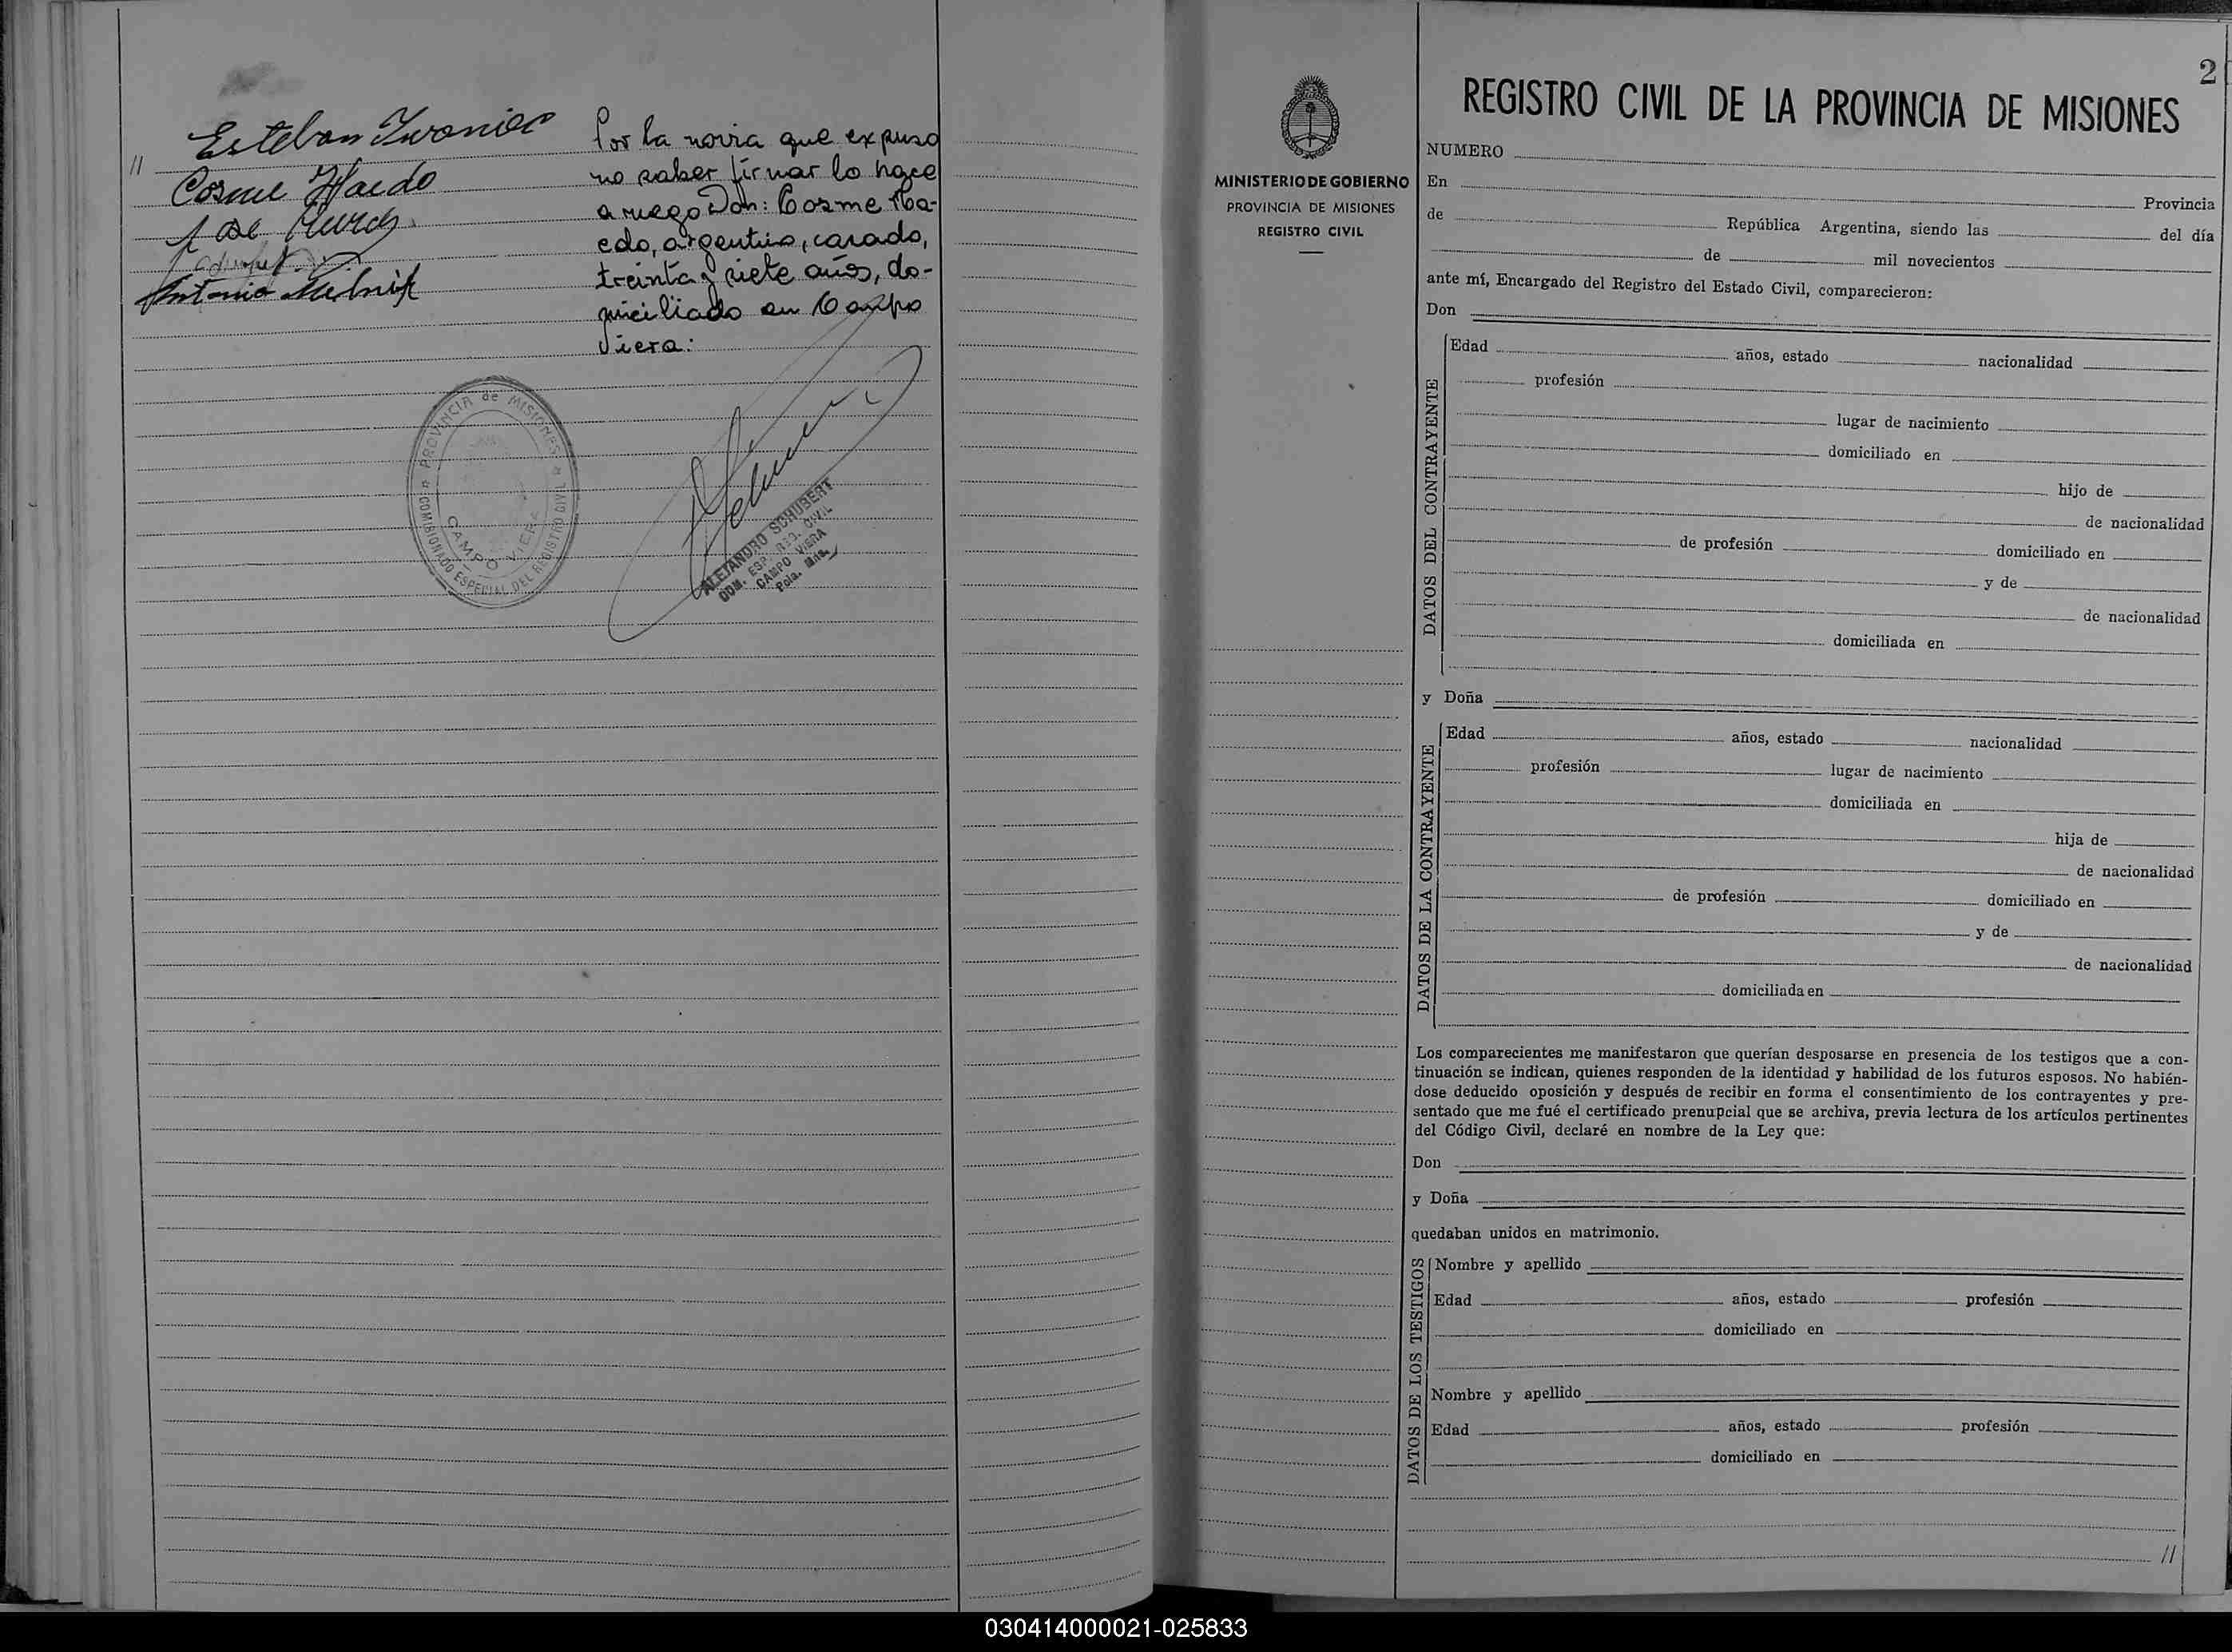 Esteban Iwaniec
//
Cosme Haedo
José
Antonio Melnik
Por la novia que expuso
no saber firmar lo hace
a ruego Don: Cosme Ha-
edo, argentino, casado,
treinta y siete años, do-
miciliado en Campo
Viera:
PROVINCIA de MISIONES
COMISIONADO ESPECIAL DEL REGISTRO CIVIL
CAMPO VIERA
ALEJANDRO SCHUBERT
COM. ESP. REG. CIVIL
CAMPO VIERA
Pcia. Mnes.
MINISTERIO DE GOBIERNO
PROVINCIA DE MISIONES
REGISTRO CIVIL
2
REGISTRO CIVIL DE LA PROVINCIA DE MISIONES
NUMERO
En Provincia
de República Argentina, siendo las del día
de mil novecientos
ante mí, Encargado del Registro del Estado Civil, comparecieron:
Don
DATOS DEL CONTRAYENTE
Edad años, estado nacionalidad
profesión
lugar de nacimiento
domiciliado en
hijo de
de nacionalidad
de profesión domiciliado en
y de
de nacionalidad
domiciliada en
y Doña
DATOS DE LA CONTRAYENTE
Edad años, estado nacionalidad
profesión lugar de nacimiento
domiciliada en
hija de
de nacionalidad
de profesión domiciliado en
y de
de nacionalidad
domiciliada en
Los comparecientes me manifestaron que querían desposarse en presencia de los testigos que a con-
tinuación se indican, quienes responden de la identidad y habilidad de los futuros esposos. No habién-
dose deducido oposición y después de recibir en forma el consentimiento de los contrayentes y pre-
sentado que me fué el certificado prenupcial que se archiva, previa lectura de los artículos pertinentes
del Código Civil, declaré en nombre de la Ley que:
Don
y Doña
quedaban unidos en matrimonio.
DATOS DE LOS TESTIGOS
Nombre y apellido
Edad años, estado profesión
domiciliado en
Nombre y apellido
Edad años, estado profesión
domiciliado en
//
030414000021-025833